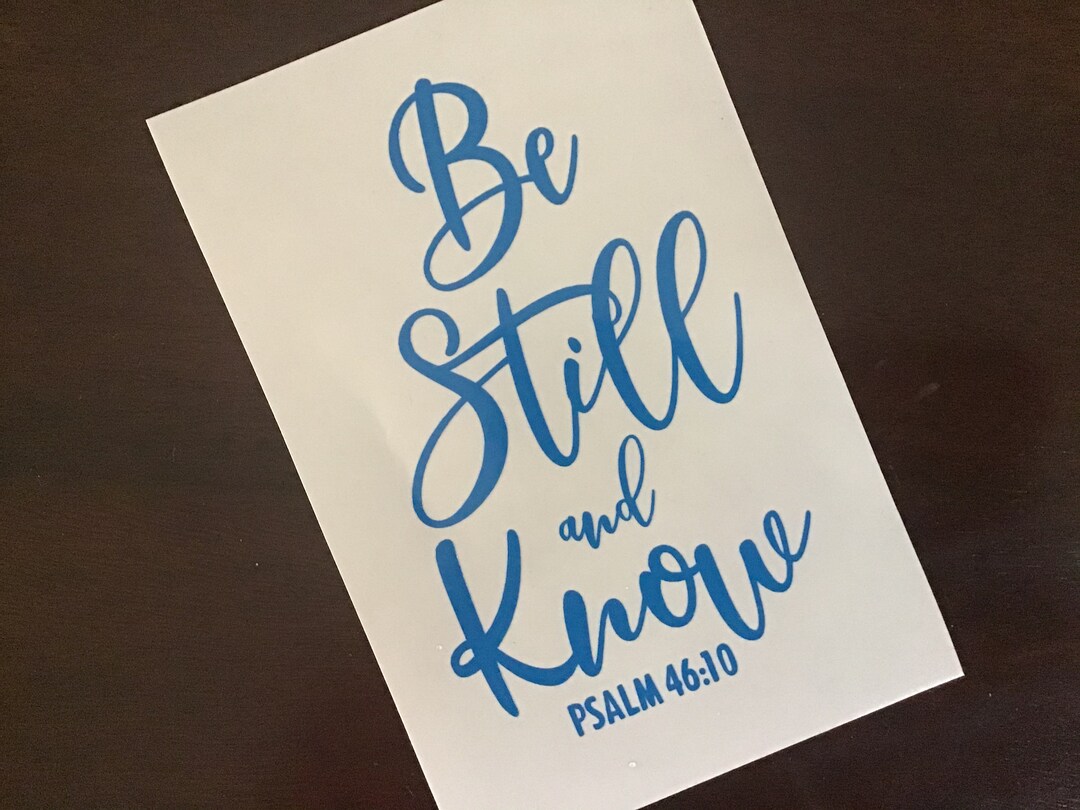 Be
Still
and
Know
PSALM 46:10